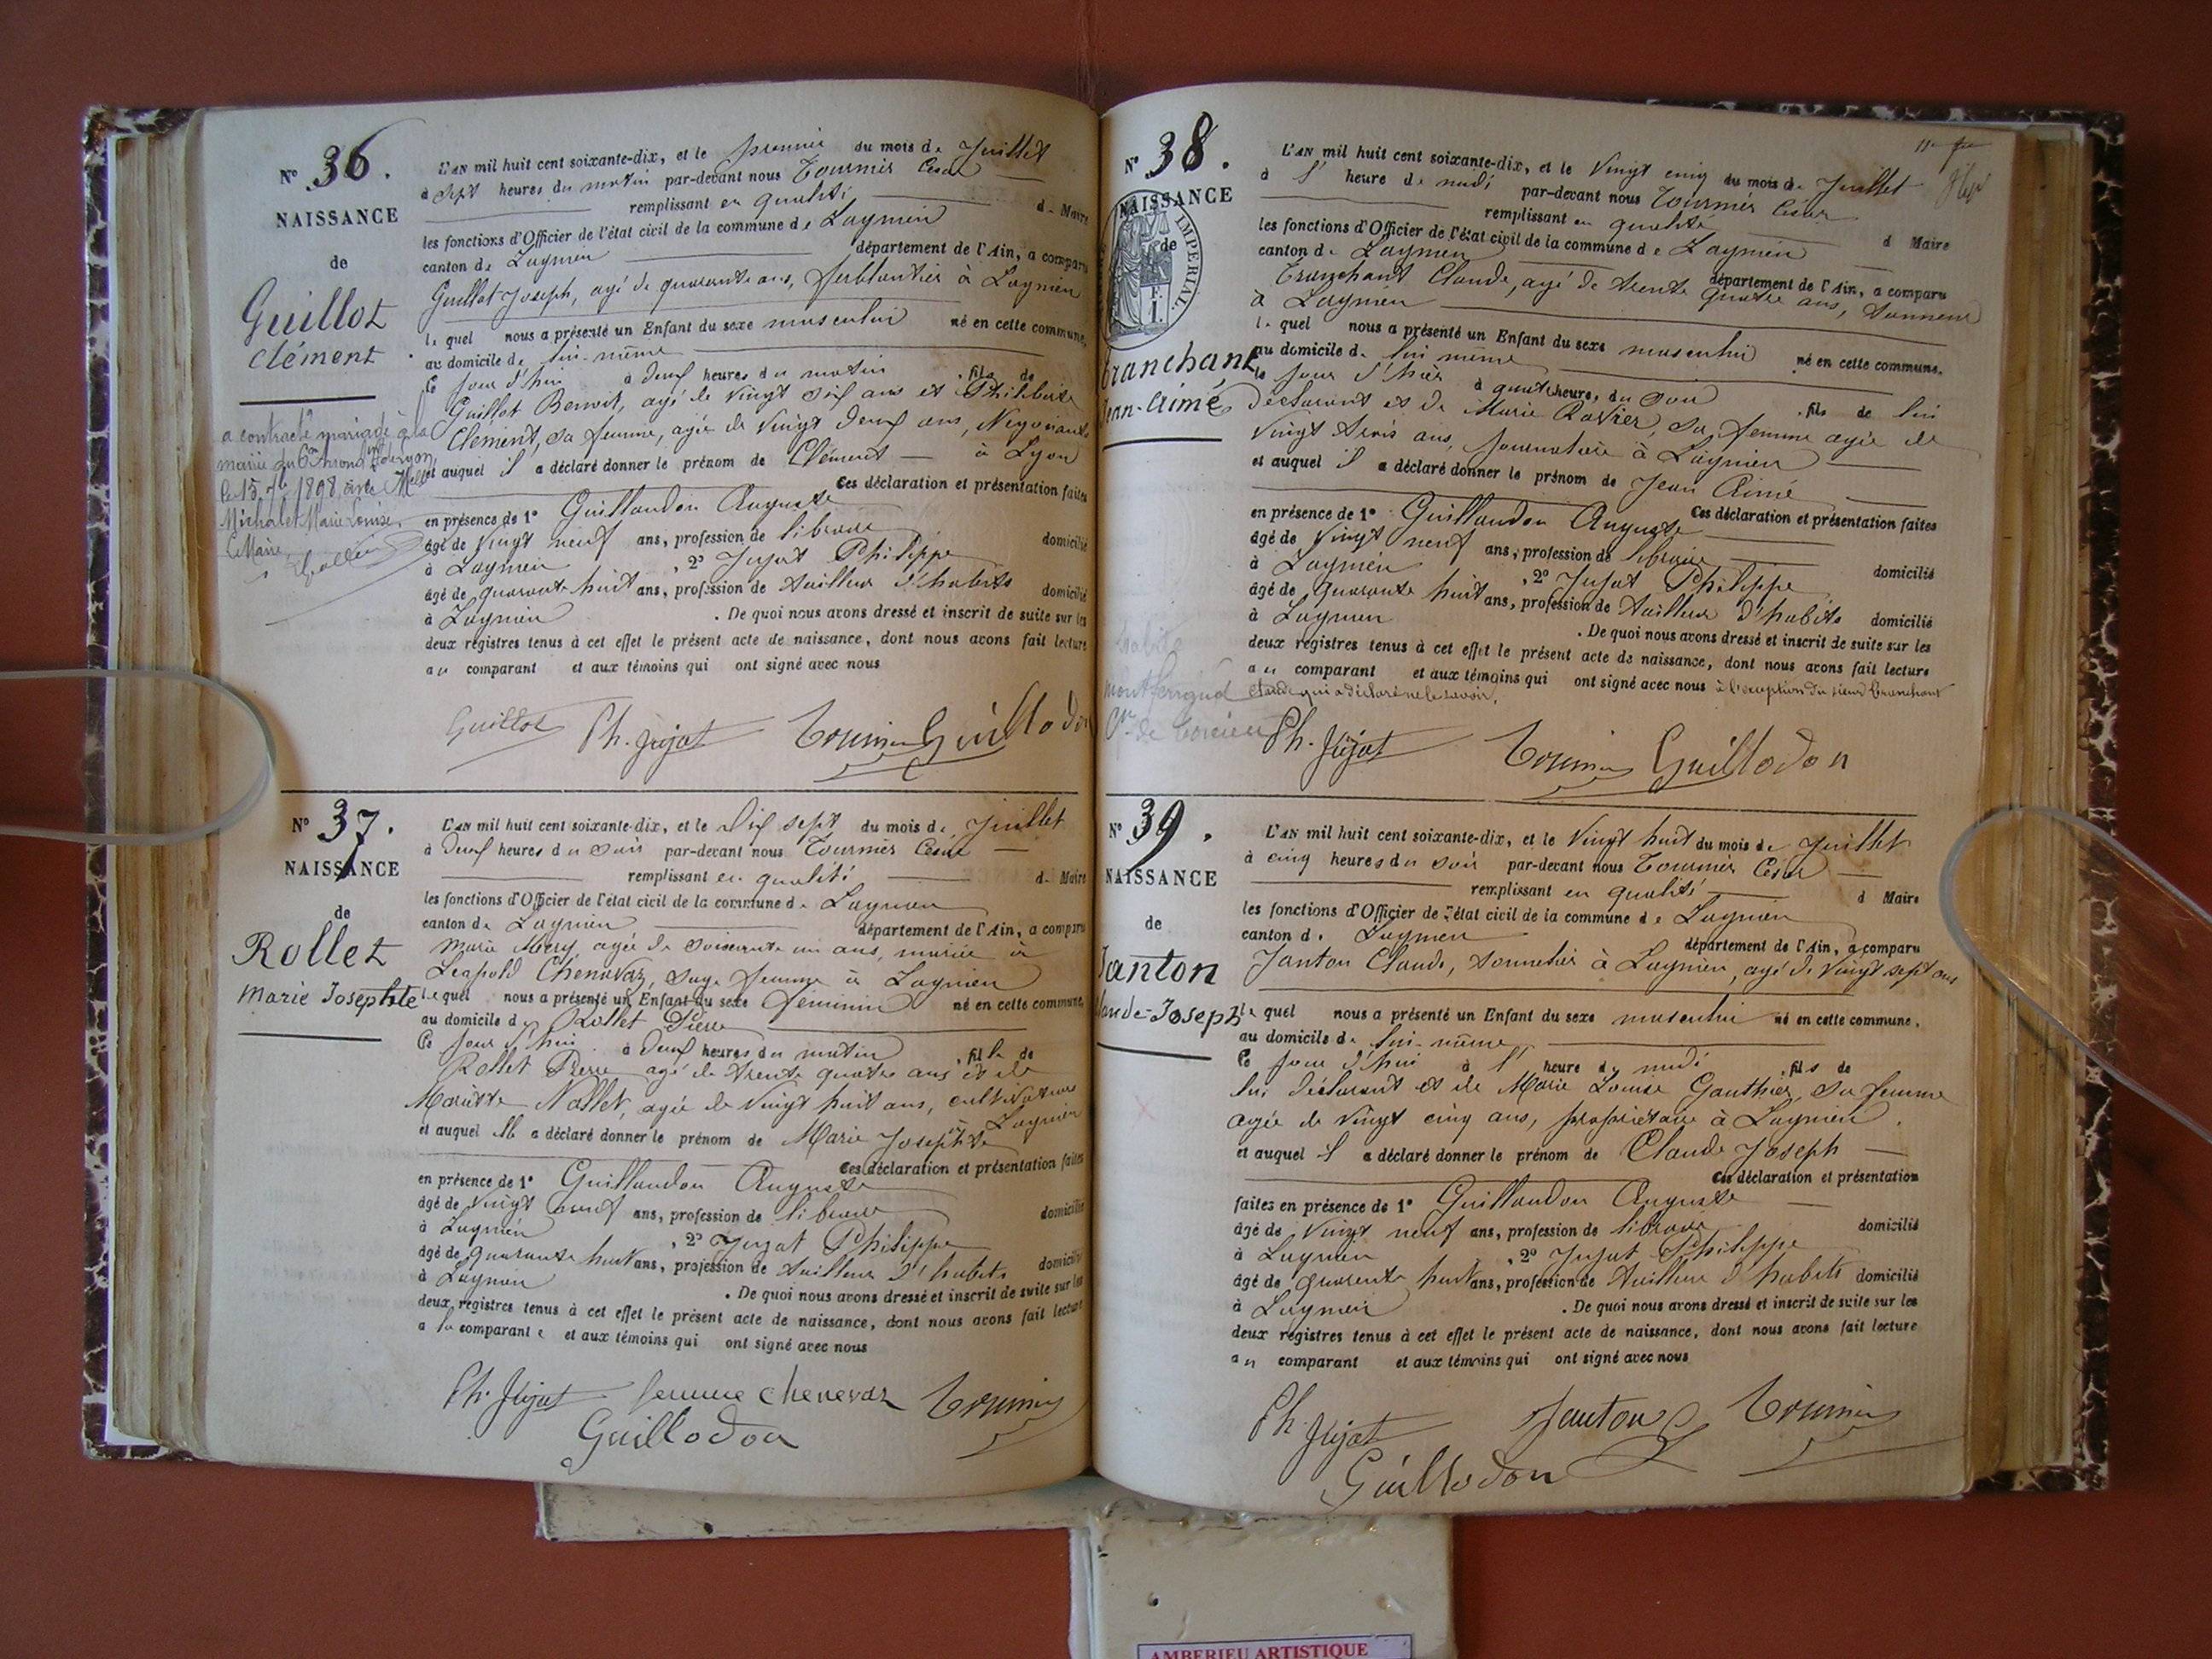 N° 36.
NAISSANCE
de
Guillot
Clément
a contracté mariage à la
mairie du 6e Arrond. de Lyon
le 15 7bre 1898 avec Melle
Michalet Marie Louise.
Le Maire,
L'AN mil huit cent soixante-dix, et le premier du mois de Juillet
à sept heures du matin par-devant nous Tournier César
remplissant en qualité de Maire
les fonctions d'Officier de l'état civil de la commune de Lagnieu
canton de Lagnieu département de l'Ain, a comparu
Guillot Joseph, agé de quarante ans, ferblantier à Lagnieu
lequel nous a présenté un Enfant du sexe masculin né en cette commune,
au domicile de lui-même
ce jour d'hui à deux heures du matin fils de
Guillot Benoit, agé de vingt six ans et Philiberte
Clément, sa femme, agée de vingt deux ans, Négociants
et auquel il a déclaré donner le prénom de Clément à Lyon
Ces déclaration et présentation faites
en présence de 1° Guillaudon Auguste
âgé de vingt neuf ans, profession de libraire domicilié
à Lagnieu , 2° Jujat Philippe
âgé de quarante huit ans, profession de tailleur d'habits domicilié
à Lagnieu . De quoi nous avons dressé et inscrit de suite sur les
deux registres tenus à cet effet le présent acte de naissance, dont nous avons fait lecture
au comparant et aux témoins qui ont signé avec nous
Guillot Ph. Jujat Tournier Guillodon
N° 37.
NAISSANCE
de
Rollet
Marie Josephte
L'AN mil huit cent soixante-dix, et le dix sept du mois de Juillet
à deux heures du soir par-devant nous Tournier César
remplissant en qualité de Maire
les fonctions d'Officier de l'état civil de la commune de Lagnieu
canton de Lagnieu département de l'Ain, a comparu
Marie Mery, agée de soixante un ans, mariée à
Léopold Chenavaz, sage femme à Lagnieu
lequel nous a présenté un Enfant du sexe féminin né en cette commune,
au domicile de Rollet Pierre
ce jour d'hui à deux heures du matin , fille de
Rollet Pierre agé de trente quatre ans et de
Mariette Nallet, agée de vingt huit ans, cultivateurs
à Lagnieu
et auquel elle a déclaré donner le prénom de Marie Josephte
Ces déclaration et présentation faites
en présence de 1° Guillaudon Auguste
âgé de vingt neuf ans, profession de libraire domicilié
à Lagnieu , 2° Jujat Philippe
âgé de quarante huit ans, profession de tailleur d'habits domicilié
à Lagnieu . De quoi nous avons dressé et inscrit de suite sur les
deux registres tenus à cet effet le présent acte de naissance, dont nous avons fait lecture
a la comparante et aux témoins qui ont signé avec nous
Ph. Jujat femme chenevaz Tournier
Guillodon
N° 38.
NAISSANCE
de
IMPERIAL
Tranchant
Jean-Aimé
habite
montferrand
Cne de Torcieu
L'AN mil huit cent soixante-dix, et le vingt cinq du mois de Juillet
à l' heure de midi par-devant nous Tournier César
remplissant en qualité d Maire
les fonctions d'Officier de l'état civil de la commune de Lagnieu
canton de Lagnieu département de l'Ain, a comparu
Tranchant Claude, agé de trente quatre ans, tanneur
à Lagnieu
lequel nous a présenté un Enfant du sexe masculin né en cette commune.
au domicile de lui même
le jour d'hier à quatre heures du soir , fils de lui
déclarant et de Marie Ravier, sa femme agée de
vingt trois ans, journalière à Lagnieu
et auquel il a déclaré donner le prénom de Jean Aimé
Ces déclaration et présentation faites
en présence de 1° Guillaudon Auguste
âgé de vingt neuf ans, profession de libraire domicilié
à Lagnieu , 2° Jujat Philippe
âgé de quarante huit ans, profession de tailleur d'habits domicilié
à Lagnieu . De quoi nous avons dressé et inscrit de suite sur les
deux registres tenus à cet effet le présent acte de naissance, dont nous avons fait lecture
au comparant et aux témoins qui ont signé avec nous à l'exception du sieur Tranchant
Claude qui a déclaré ne le savoir.
Ph. Jujat Tournier Guillodon
N° 39.
NAISSANCE
de
Janton
Claude-Joseph
L'AN mil huit cent soixante-dix, et le vingt huit du mois de Juillet
à cinq heures du soir par-devant nous Tournier César
remplissant en qualité d Maire
les fonctions d'Officier de l'état civil de la commune de Lagnieu
canton de Lagnieu département de l'Ain, a comparu
Janton Claude, tonnelier à Lagnieu, agé de vingt sept ans
lequel nous a présenté un Enfant du sexe masculin né en cette commune,
au domicile de lui-même
ce jour d'hui à l' heure de midi , fils de
lui déclarant et de Marie Louise Gauthier, sa femme
agée de vingt cinq ans, propriétaire à Lagnieu.
et auquel il a déclaré donner le prénom de Claude Joseph
Ces déclaration et présentation
faites en présence de 1° Guillaudon Auguste
âgé de vingt neuf ans, profession de libraire domicilié
à Lagnieu , 2° Jujat Philippe
âgé de quarante huit ans, profession de tailleur d'habits domicilié
à Lagnieu . De quoi nous avons dressé et inscrit de suite sur les
deux registres tenus à cet effet le présent acte de naissance, dont nous avons fait lecture
au comparant et aux témoins qui ont signé avec nous
Ph. Jujat Janton Tournier
Guillodon
AMBERIEU ARTISTIQUE